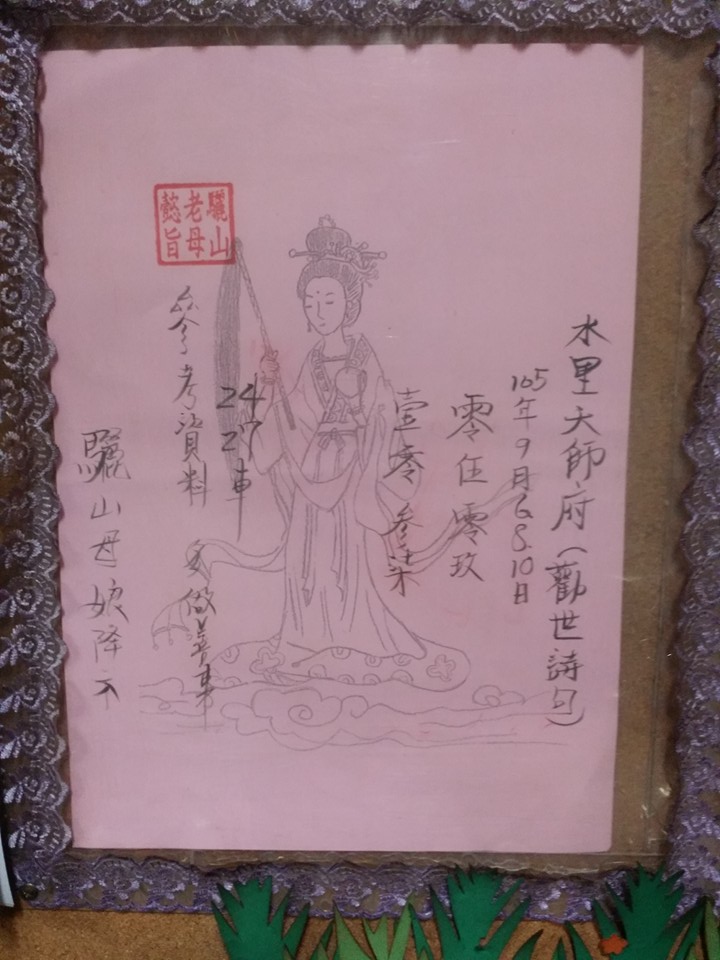 水里大師府(勸世詩句)
105年9月6.8.10日
零伍零玖
壹零參柒
24 27車
參考資料 多做善事
驪山母娘降示
驪山老母懿旨